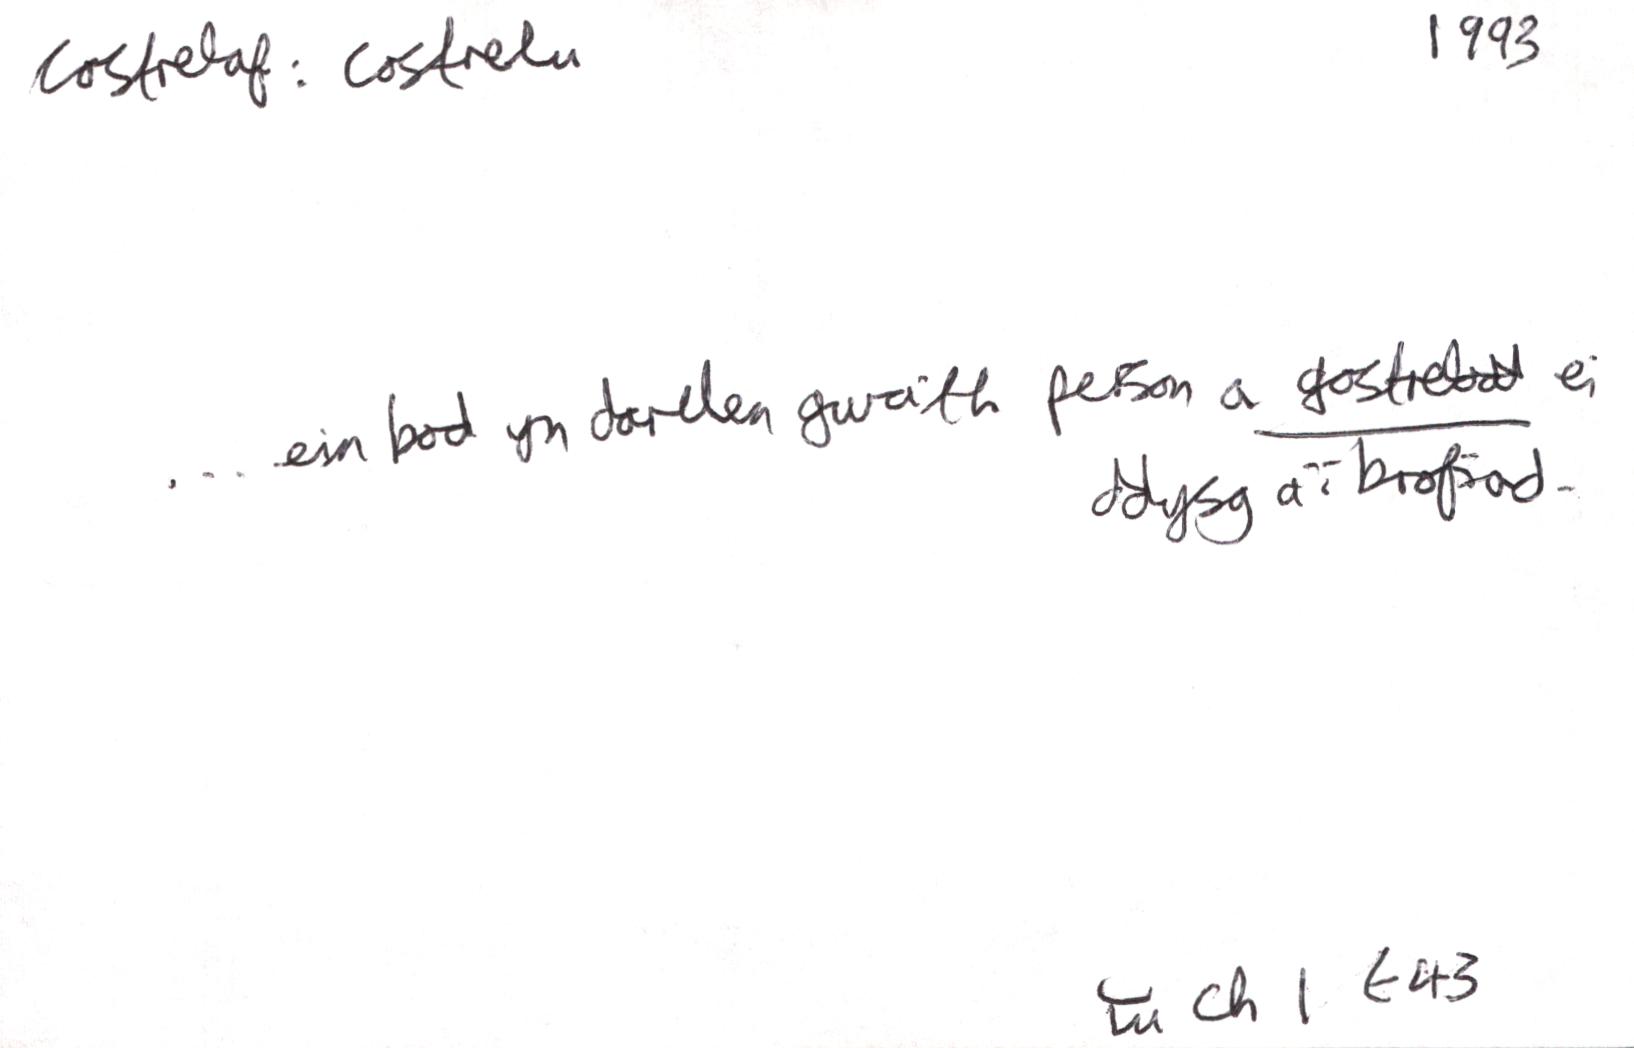 costrelaf: costrelu 1993
... ein bod yn darllen gwaith person a gostrelodd ei
ddysg a'i brofiad.
Ch 1 t43